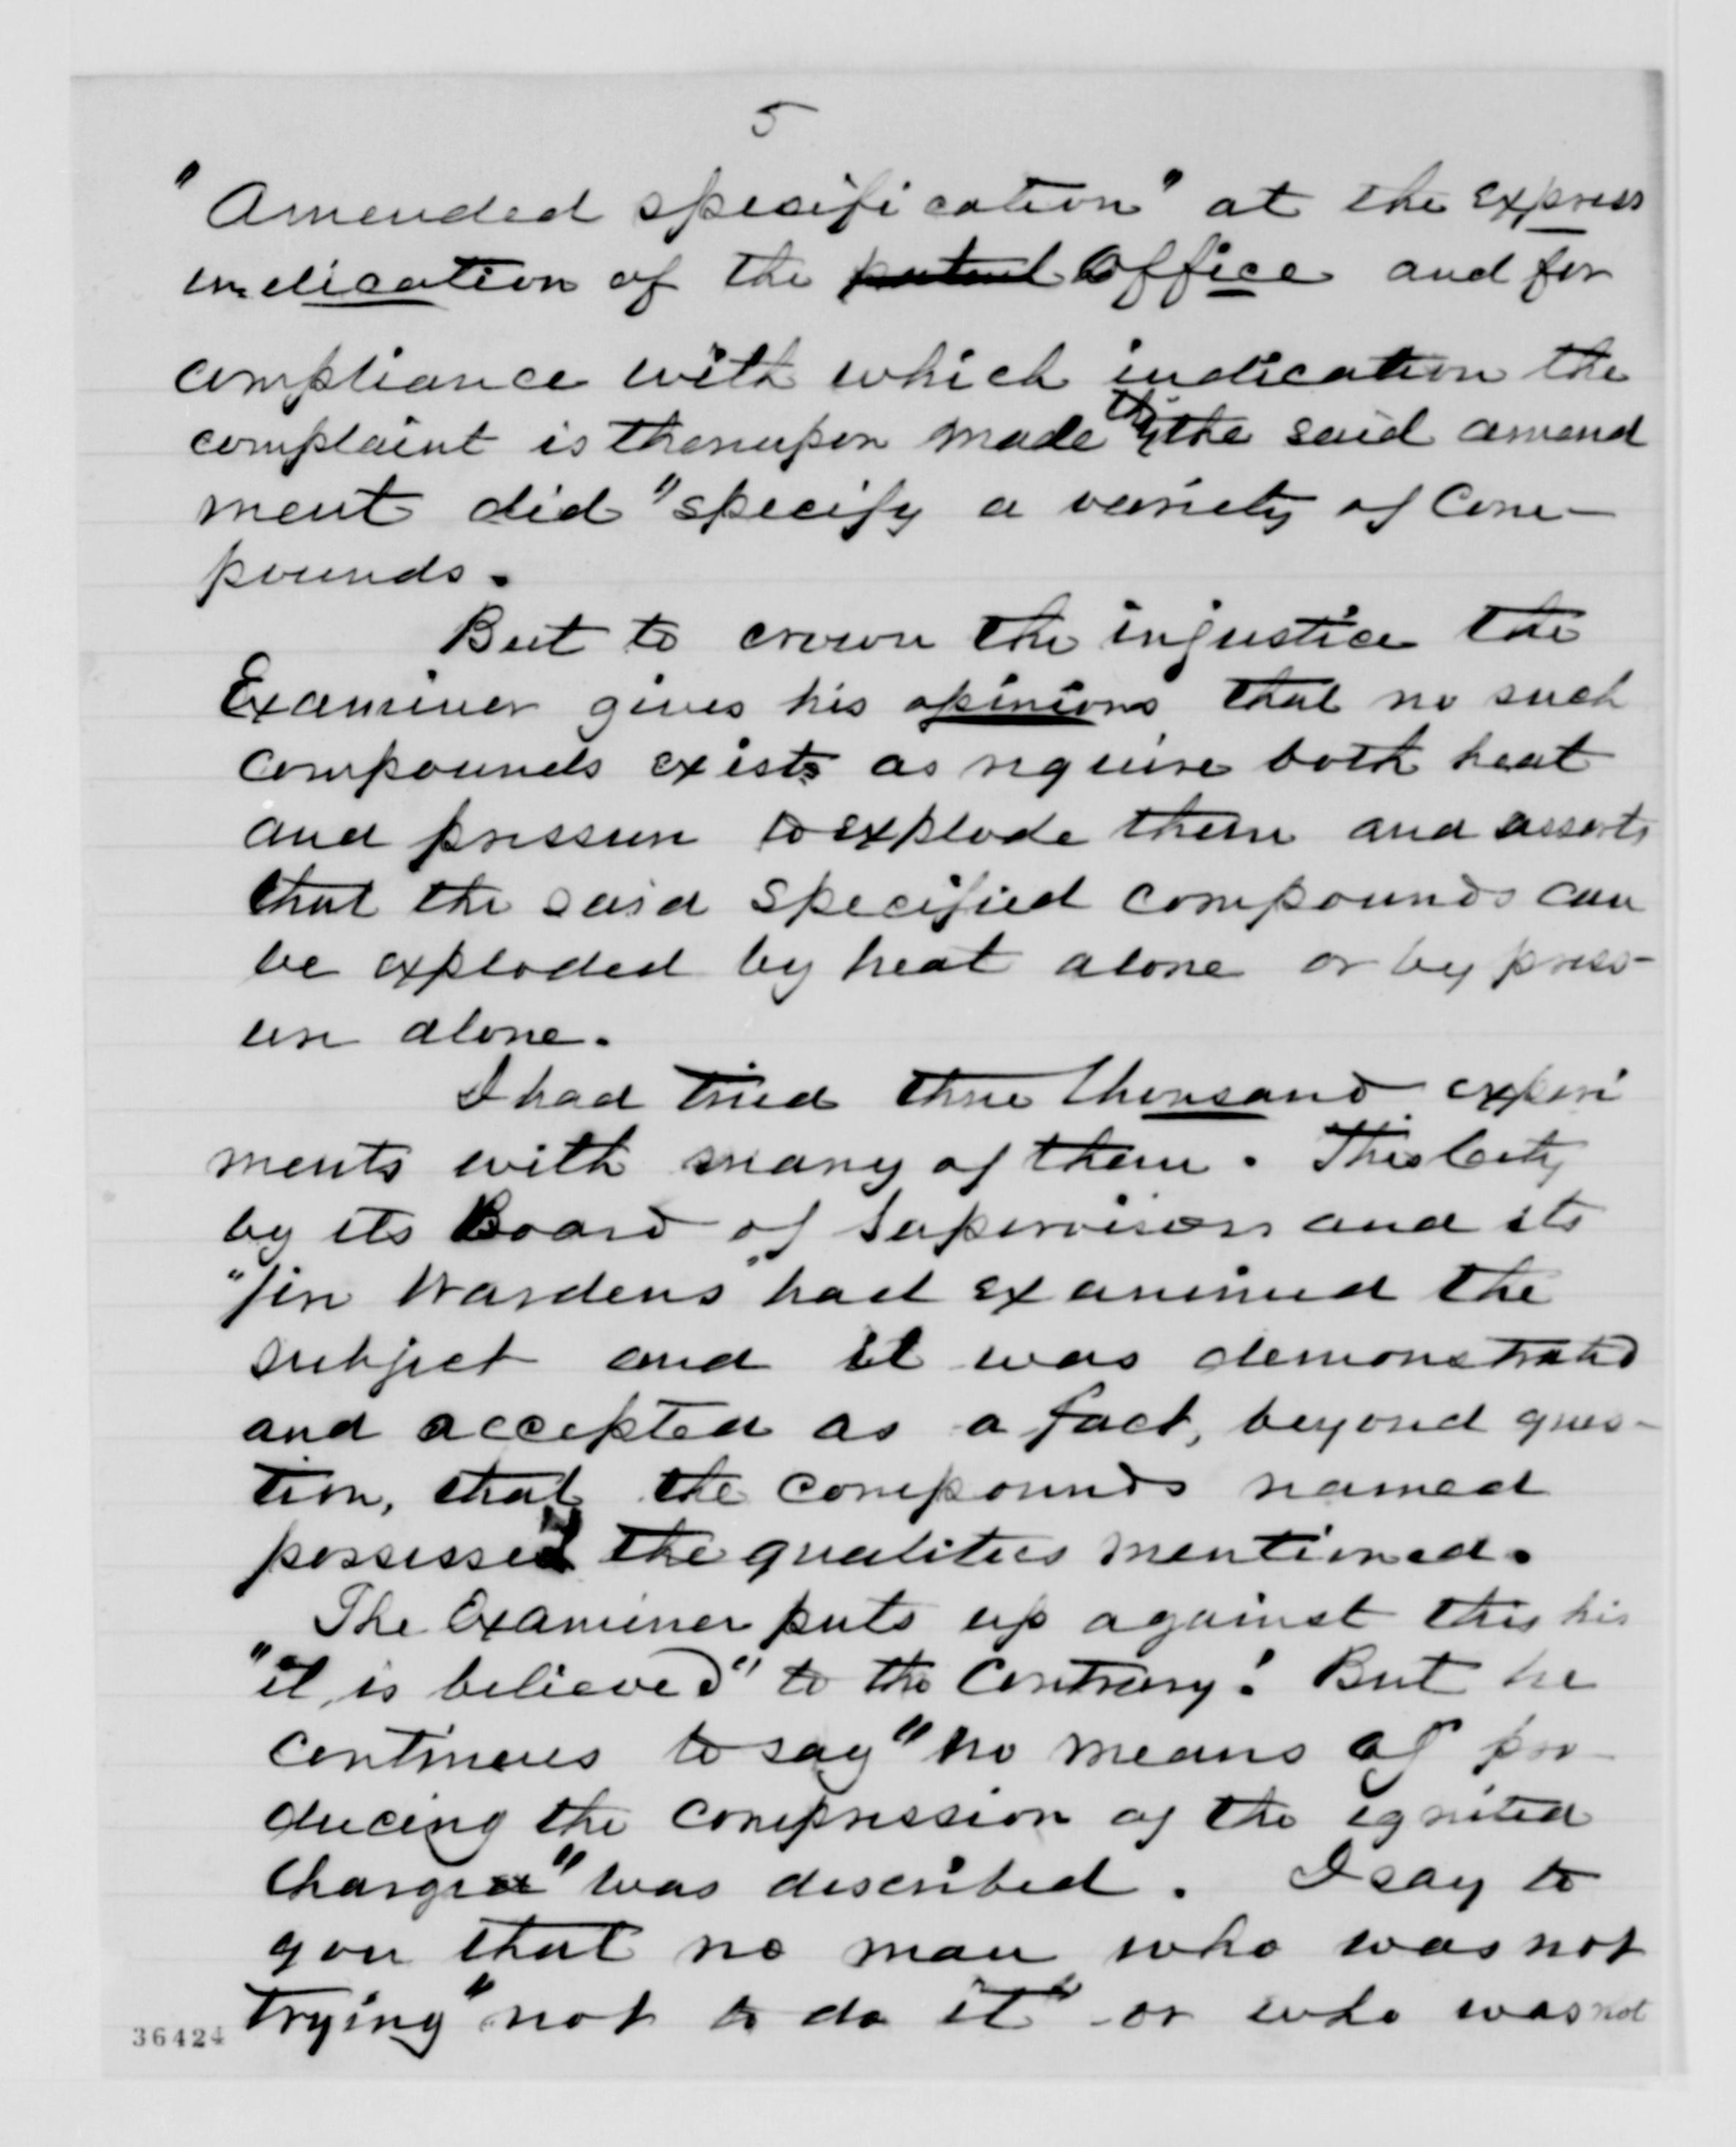 5
"Amended specification" at the express
indication of the patent Office and for
compliance with which indication the
complaint is thereupon made that the said amend
ment did "specify a variety of Com-
pounds.
But to crown the injustice the
Examiner gives his opinions that no such
compounds exists as require both heat
and pressure to explode them and asserts
that the said specified compounds can
be exploded by heat alone or by press-
ure alone.
I had tried three thousand experi
ments with many of them. This City
by its Board of Supervisors and its
"Fire Wardens" had examined the
subject and it was demonstrated
and accepted as a fact, beyond ques-
tion, that the compounds named
possessed the qualities mentioned.
The Examiner puts up against this his
"it is believed" to the Contrary! But he
continues to say "no means of pro-
ducing the compression of the ignited
charge" was described. I say to
you that no man who was not
trying "not to do it" or who was not
36424